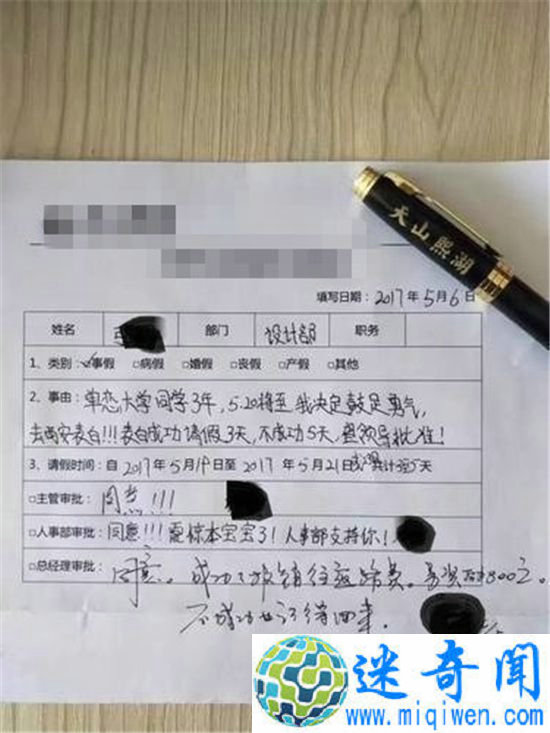 天山熙湖
填写日期：2017年5月6日
姓名 部门 设计部 职务
1、类别：☑事假 □病假 □婚假 □丧假 □产假 □其他
2、事由：单恋大学同学3年，5.20将至我决定鼓足勇气，
去西安表白!!!表白成功请假3天，不成功5天，望领导批准！
3、请假时间：自2017年5月19日至2017年5月21日或累计至5天
□主管审批：同意!!!
□人事部审批：同意!!!震惊本宝宝了！人事部支持你！
□总经理审批：同意。成功报销往返路费。800元。
不成功也记得回来．
迷奇闻
www.miqiwen.com